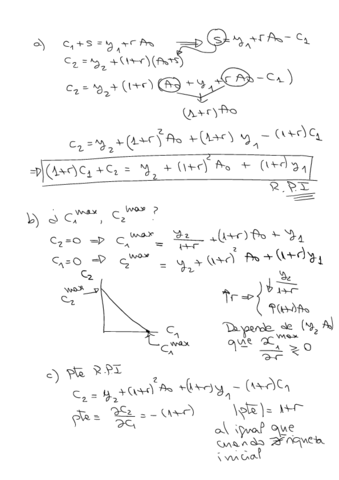 a) C₁ + S = y₁ + r A₀ ⟹ S = y₁ + r A₀ - C₁
C₂ = y₂ + (1+r)(A₀+S)
C₂ = y₂ + (1+r)(A₀ + y₁ + r A₀ - C₁)
(1+r) A₀
C₂ = y₂ + (1+r)² A₀ + (1+r) y₁ - (1+r) C₁
⇒ (1+r) C₁ + C₂ = y₂ + (1+r)² A₀ + (1+r) y₁
R.P.I
b) ¿ C₁ᵐᵃˣ, C₂ᵐᵃˣ ?
C₂=0 ⇒ C₁ᵐᵃˣ = y₂/(1+r) + (1+r) A₀ + y₁
C₁=0 ⇒ C₂ᵐᵃˣ = y₂ + (1+r)² A₀ + (1+r) y₁
C₂
C₂ᵐᵃˣ
C₁
C₁ᵐᵃˣ
↑r ⇒ { ↓ y₂/(1+r)
↑(1+r)A₀
Depende de (y₂ A₀)
que ∂C₁ᵐᵃˣ/∂r ≷ 0
c) pte R.P.I
C₂ = y₂ + (1+r)² A₀ + (1+r) y₁ - (1+r) C₁
pte = ∂C₂/∂C₁ = - (1+r)
|pte| = 1+r
al igual que
cuando riqueza
inicial